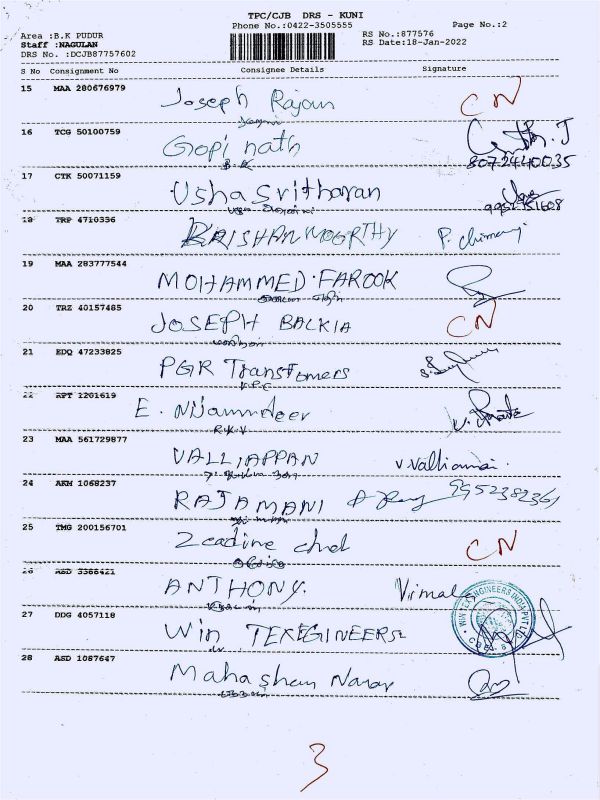 TPC/CJB DRS - KUNI
Phone No.:0422-3505555 Page No.:2
Area :B.K PUDUR RS No.:877576
Staff :NAGULAN RS Date:18-Jan-2022
DRS No. :DCJB87757602
S No Consignment No Consignee Details Signature
15 MAA 280676979 Joseph Rajoun CN
16 TCG 50100759 Gopi nath
B.K 8072440035
17 CTK 50071159 Usha Sritharan
18 TRP 4710336 KRISHAN MOORTHY P.
19 MAA 283777544 MOHAMMED. FAROOK
20 TRZ 40157485 JOSEPH BALKIA CN
21 EDQ 47233825 PGR Transfomers
K.P.C
22 APT 1201619 E. Nijammdeer
R.K.V
23 MAA 561729877 VALLIAPPAN V.Valliammai.
24 AKM 1068237 RAJAMANI 9952382361
25 TMG 200156701 Zeadine chel CN
26 ASD 3388421 ANTHONY. Vimala
27 DDG 4057118 Win TEXEGINEERS WIN TEX ENGINEERS INDIA PVT LTD
28 ASD 1087647 Mahashan Narar
3